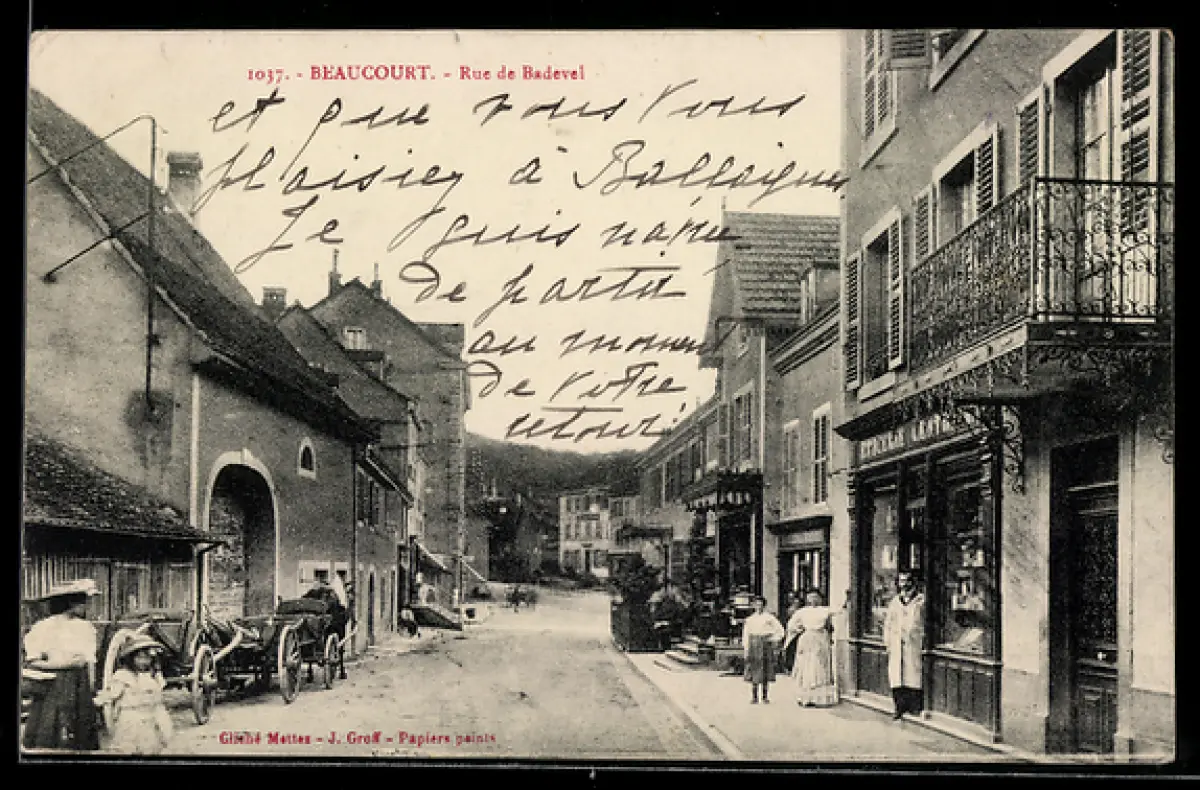 1037. - BEAUCOURT. - Rue de Badevel
et que vous vous
plaisiez à Ballaigue
Je suis navré
de partir
au moment
de votre
retour
Cliché Mettez - J. Groff - Papiers peints